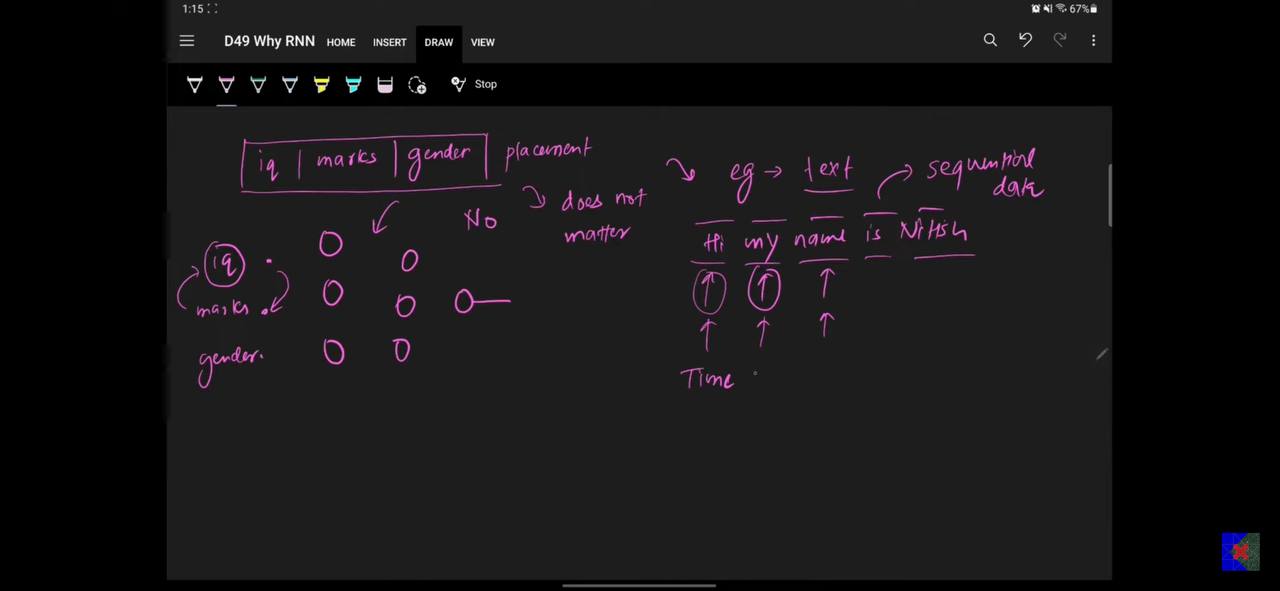 1:15 67%
D49 Why RNN HOME INSERT DRAW VIEW
Stop
iq | marks | gender | placement
No
does not
matter
iq
marks
gender
eg → text → sequential
data
Hi my name is Nitish
Time